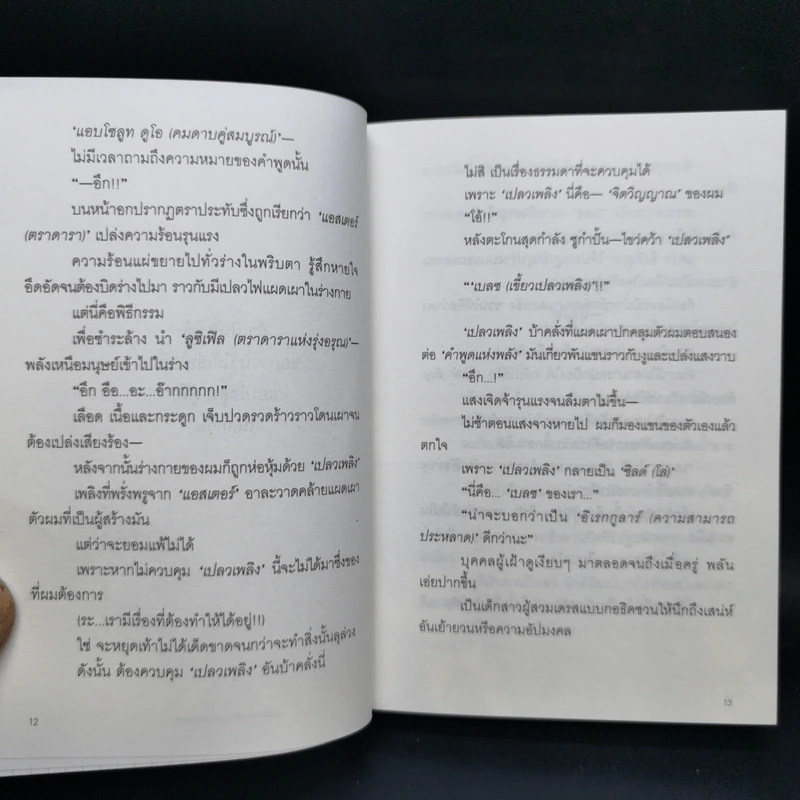 ‘แอบโซลูท ดูโอ (คมดาบคู่สมบูรณ์)’—
ไม่มีเวลาถามถึงความหมายของคำพูดนั้น
“—อึก!!”
บนหน้าอกปรากฏตราประทับซึ่งถูกเรียกว่า ‘แอสเตอร์
(ตราดารา)’ เปล่งความร้อนรุนแรง
ความร้อนแผ่ขยายไปทั่วร่างในพริบตา รู้สึกหายใจ
อึดอัดจนต้องบิดร่างไปมา ราวกับมีเปลวไฟแผดเผาในร่างกาย
แต่นี่คือพิธีกรรม
เพื่อชำระล้าง นำ ‘ลูซิเฟิล (ตราดาราแห่งรุ่งอรุณ)’—
พลังเหนือมนุษย์เข้าไปในร่าง
“อึก อือ...อะ...อ๊ากกกกก!”
เลือด เนื้อและกระดูก เจ็บปวดรวดร้าวราวโดนเผาจน
ต้องเปล่งเสียงร้อง—
หลังจากนั้นร่างกายของผมก็ถูกห่อหุ้มด้วย ‘เปลวเพลิง’
เพลิงที่พรั่งพรูจาก ‘แอสเตอร์’ อาละวาดคล้ายแผดเผา
ตัวผมที่เป็นผู้สร้างมัน
แต่ว่าจะยอมแพ้ไม่ได้
เพราะหากไม่ควบคุม ‘เปลวเพลิง’ นี้จะไม่ได้มาซึ่งของ
ที่ผมต้องการ
(ระ...เรามีเรื่องที่ต้องทำให้ได้อยู่!!)
ใช่ จะหยุดเท้าไม่ได้เด็ดขาดจนกว่าจะทำสิ่งนั้นลุล่วง
ดังนั้น ต้องควบคุม ‘เปลวเพลิง’ อันบ้าคลั่งนี่
12
ไม่สิ เป็นเรื่องธรรมดาที่จะควบคุมได้
เพราะ ‘เปลวเพลิง’ นี่คือ— ‘จิตวิญญาณ’ ของผม
“โอ้!!”
หลังตะโกนสุดกำลัง ชูกำปั้น—ไขว่คว้า ‘เปลวเพลิง’
“‘เบลซ (เขี้ยวเปลวเพลิง)’!!”
‘เปลวเพลิง’ บ้าคลั่งที่แผดเผาปกคลุมตัวผมตอบสนอง
ต่อ ‘คำพูดแห่งพลัง’ มันเกี่ยวพันแขนราวกับงูและเปล่งแสงวาบ
“อึก...!”
แสงเจิดจ้ารุนแรงจนลืมตาไม่ขึ้น—
ไม่ช้าตอนแสงจางหายไป ผมก็มองแขนของตัวเองแล้ว
ตกใจ
เพราะ ‘เปลวเพลิง’ กลายเป็น ‘ชิลด์ (โล่)’
“นี่คือ... ‘เบลซ’ ของเรา...”
“น่าจะบอกว่าเป็น ‘อิเรกกูลาร์ (ความสามารถ
ประหลาด)’ ดีกว่านะ”
บุคคลผู้เฝ้าดูเงียบๆ มาตลอดจนถึงเมื่อครู่ พลัน
เอ่ยปากขึ้น
เป็นเด็กสาวผู้สวมเดรสแบบกอธิคชวนให้นึกถึงเสน่ห์
อันเย้ายวนหรือความอัปมงคล
13